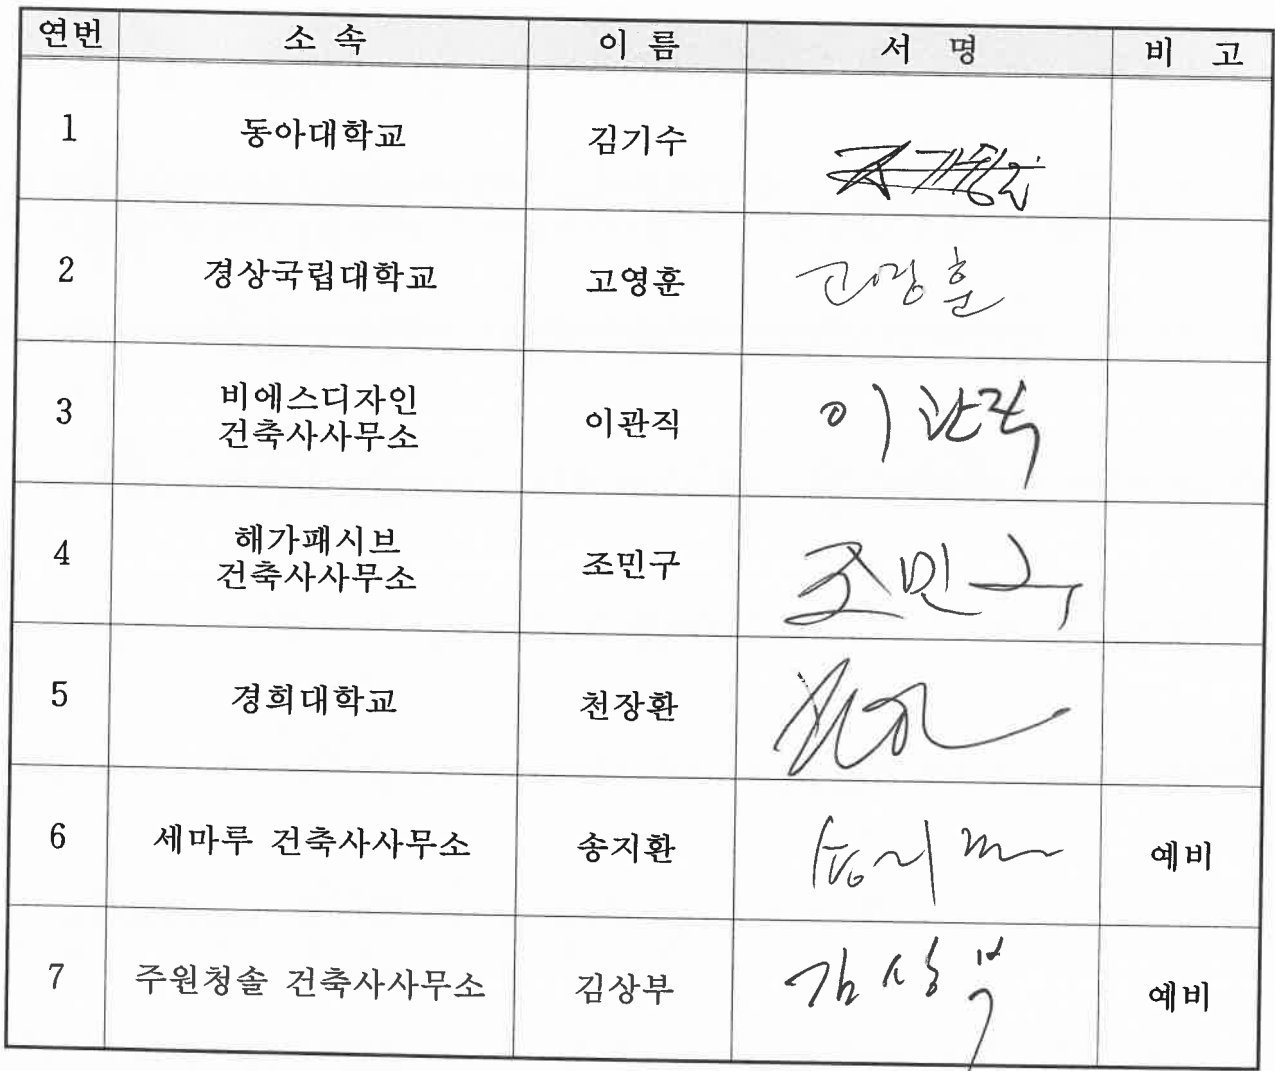 연번 소 속 이 름 서 명 비 고
1 동아대학교 김기수
2 경상국립대학교 고영훈 고영훈
3 비에스디자인
건축사사무소 이관직 이관직
4 해가패시브
건축사사무소 조민구 조민구
5 경희대학교 천장환
6 세마루 건축사사무소 송지환 예비
7 주원청솔 건축사사무소 김상부 김상부 예비